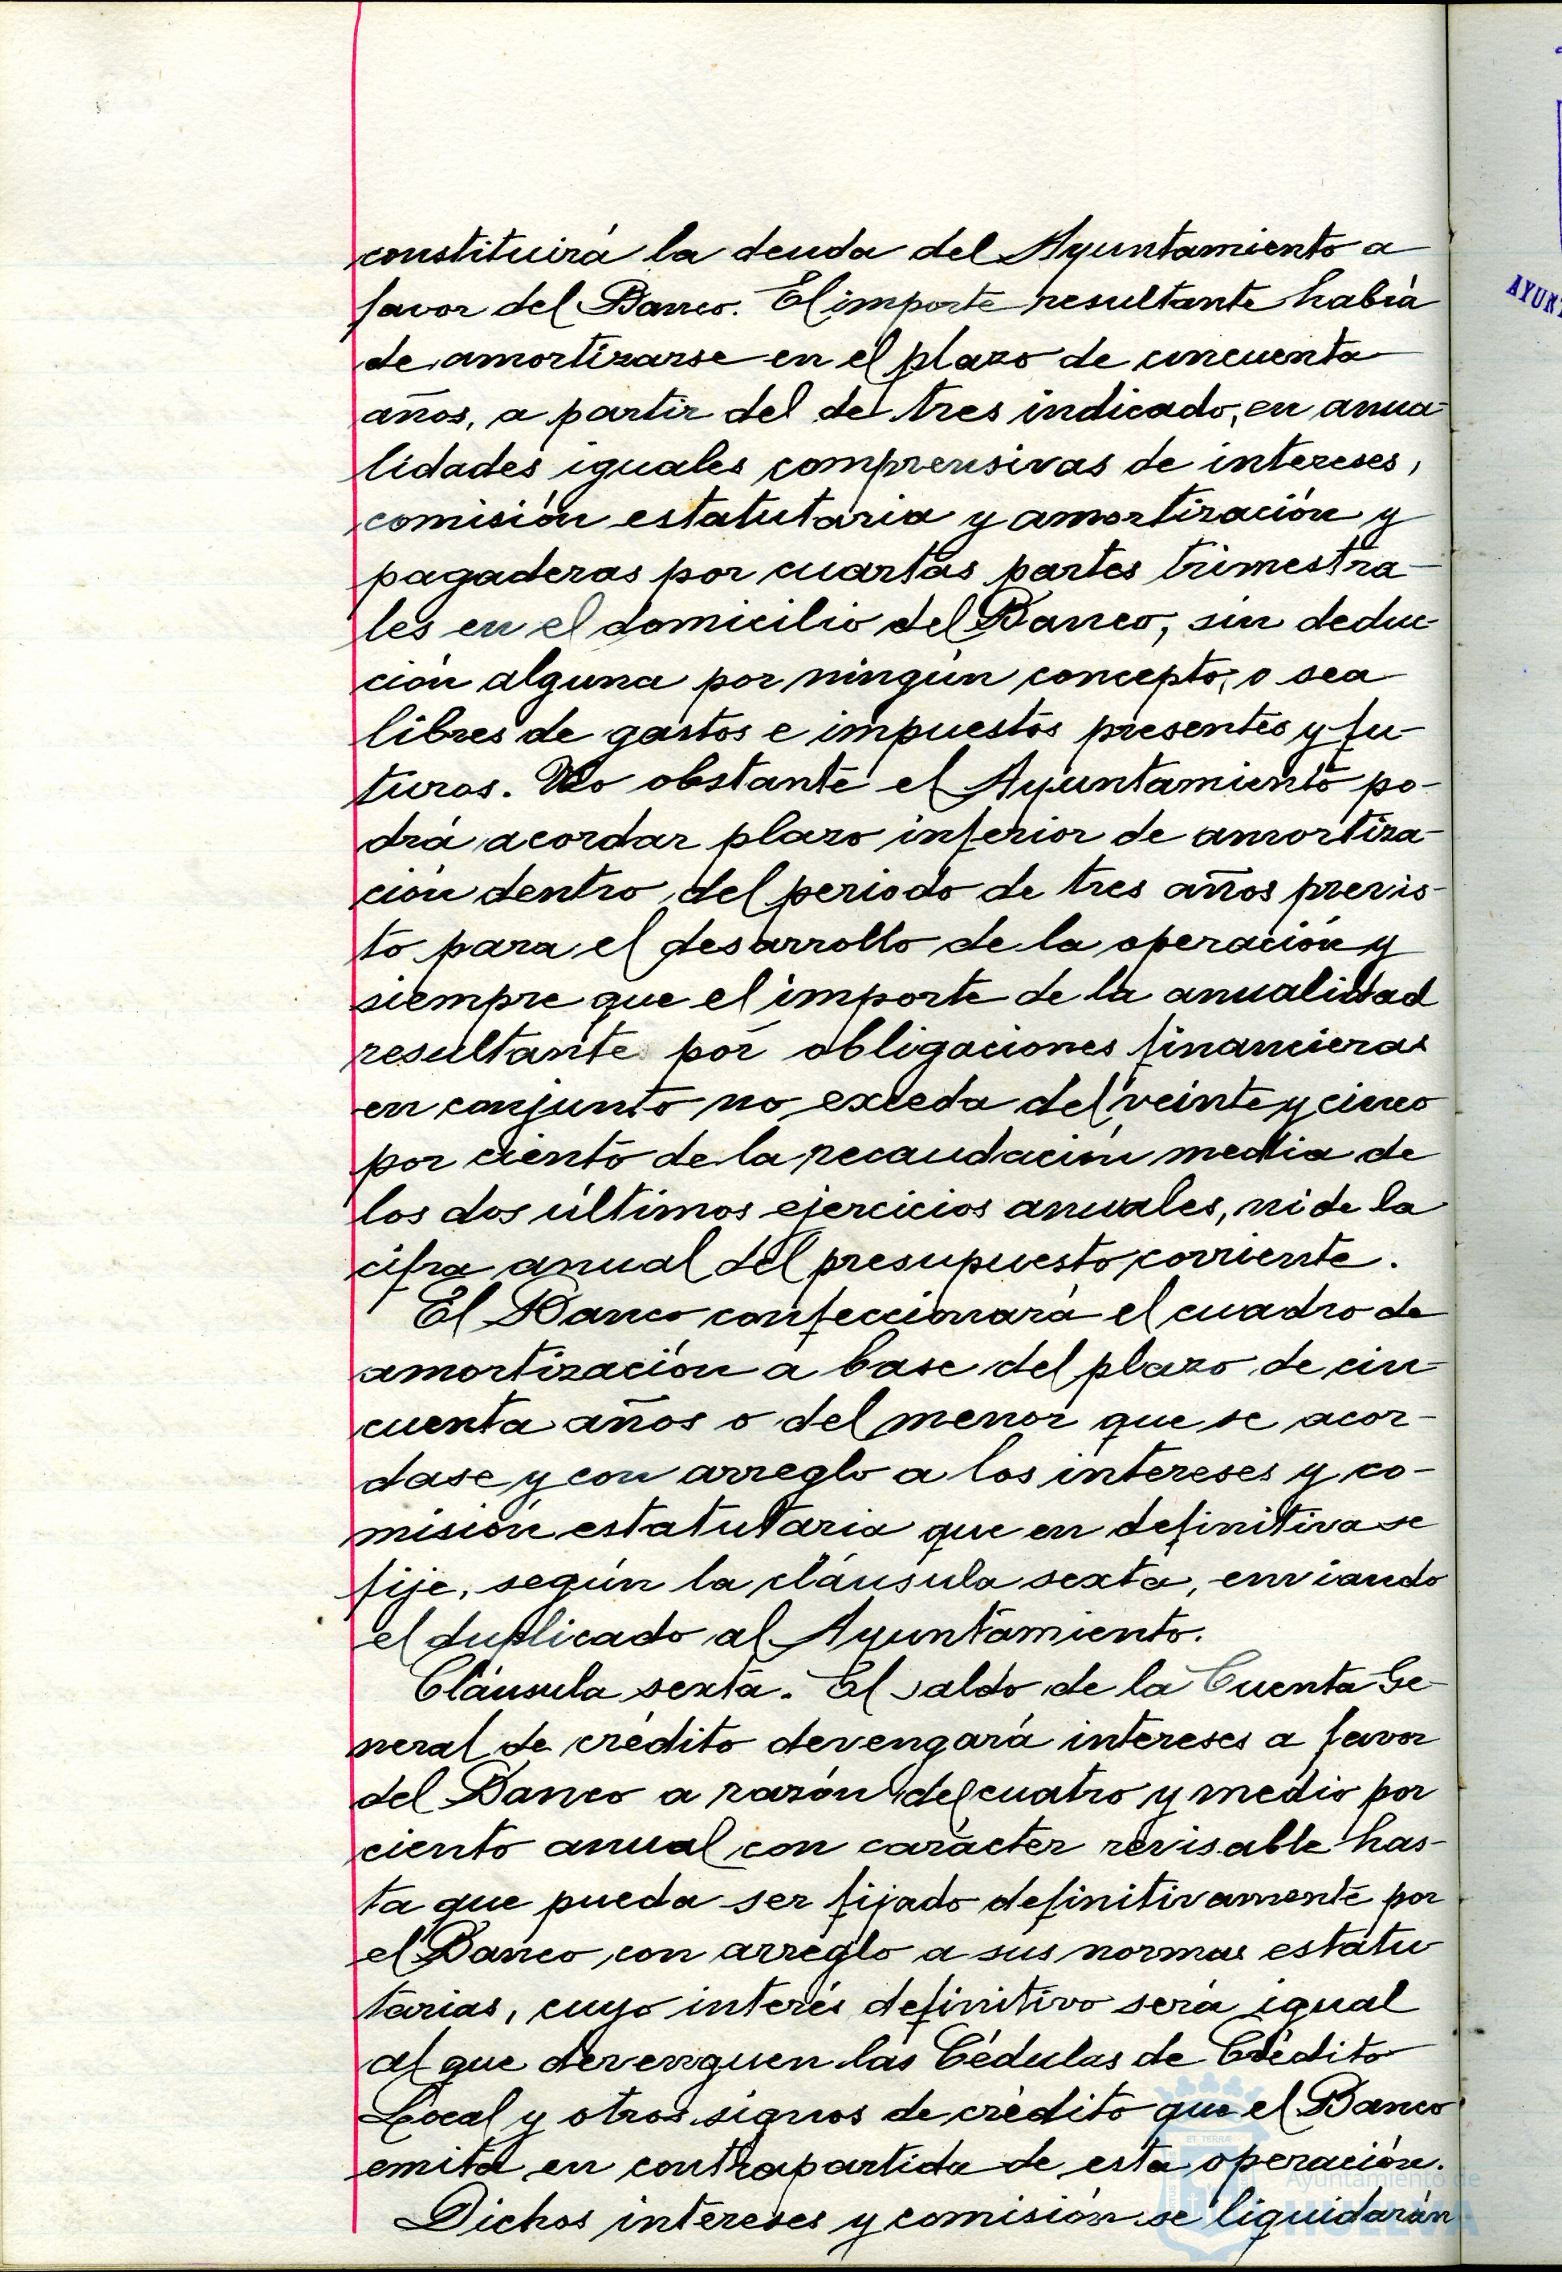 constituirá la deuda del Ayuntamiento a
favor del Banco. El importe resultante habrá
de amortizarse en el plazo de cincuenta
años, a partir del de tres indicado, en anua-
lidades iguales comprensivas de intereses,
comisión estatutaria y amortización y
pagaderas por cuartas partes trimestra-
les en el domicilio del Banco, sin deduc-
ción alguna por ningún concepto, o sea
libres de gastos e impuestos presentes y fu-
turos. No obstante el Ayuntamiento po-
drá acordar plazo inferior de amortiza-
ción dentro del periodo de tres años previs-
to para el desarrollo de la operación y
siempre que el importe de la anualidad
resultante por obligaciones financieras
en conjunto no exceda del veinte y cinco
por ciento de la recaudación media de
los dos últimos ejercicios anuales, ni de la
cifra anual del presupuesto corriente.
El Banco confeccionará el cuadro de
amortización a base del plazo de cin-
cuenta años o del menor que se acor-
dase y con arreglo a los intereses y co-
misión estatutaria que en definitiva se
fije, según la cláusula sexta, enviando
el duplicado al Ayuntamiento.
Cláusula sexta. El saldo de la Cuenta Ge-
neral de crédito devengará intereses a favor
del Banco a razón del cuatro y medio por
ciento anual con carácter revisable has-
ta que pueda ser fijado definitivamente por
el Banco con arreglo a sus normas estatu-
tarias, cuyo interés definitivo será igual
al que devenguen las Cédulas de Crédito
Local y otros signos de crédito que el Banco
emita en contrapartida de esta operación.
Dichos intereses y comisión se liquidarán
AYUNT
ET TERRÆ
Ayuntamiento de
HUELVA